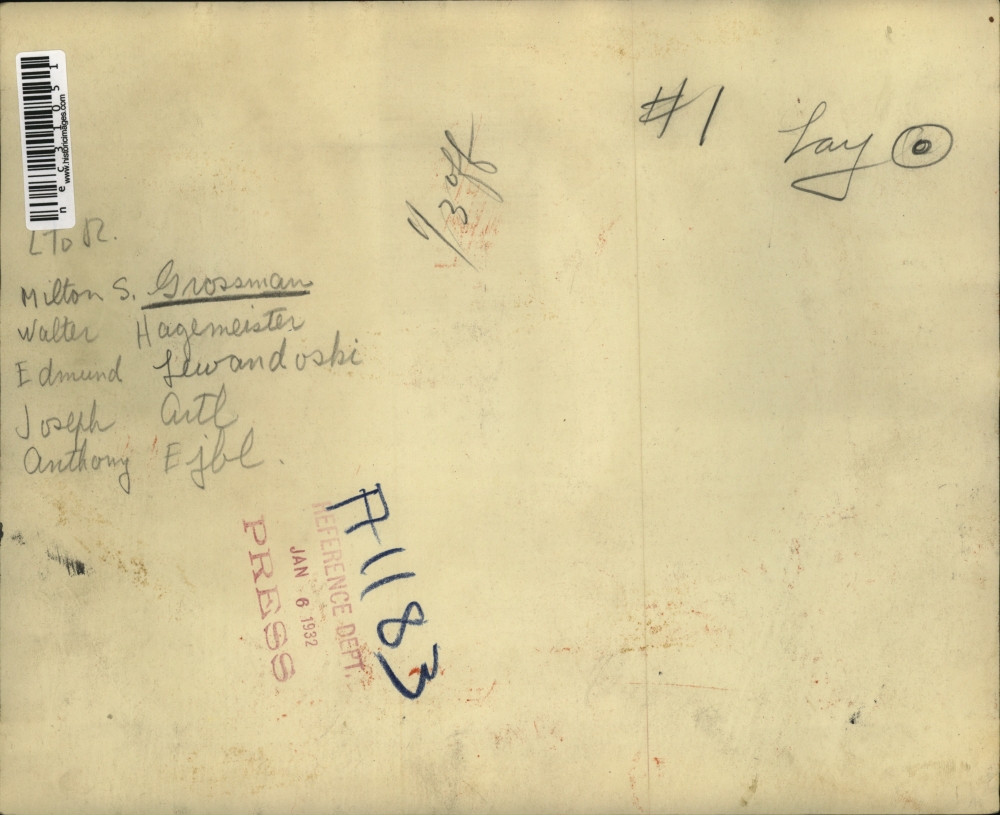 nec31051
www.historicimages.com
#1
Lay
1/3 off
L To R.
Milton S. Grossman
Walter Hagemeister
Edmund Lewandoski
Joseph Artl
Anthony Ejbl.
A1183
REFERENCE DEPT.
JAN 6 1932
PRESS